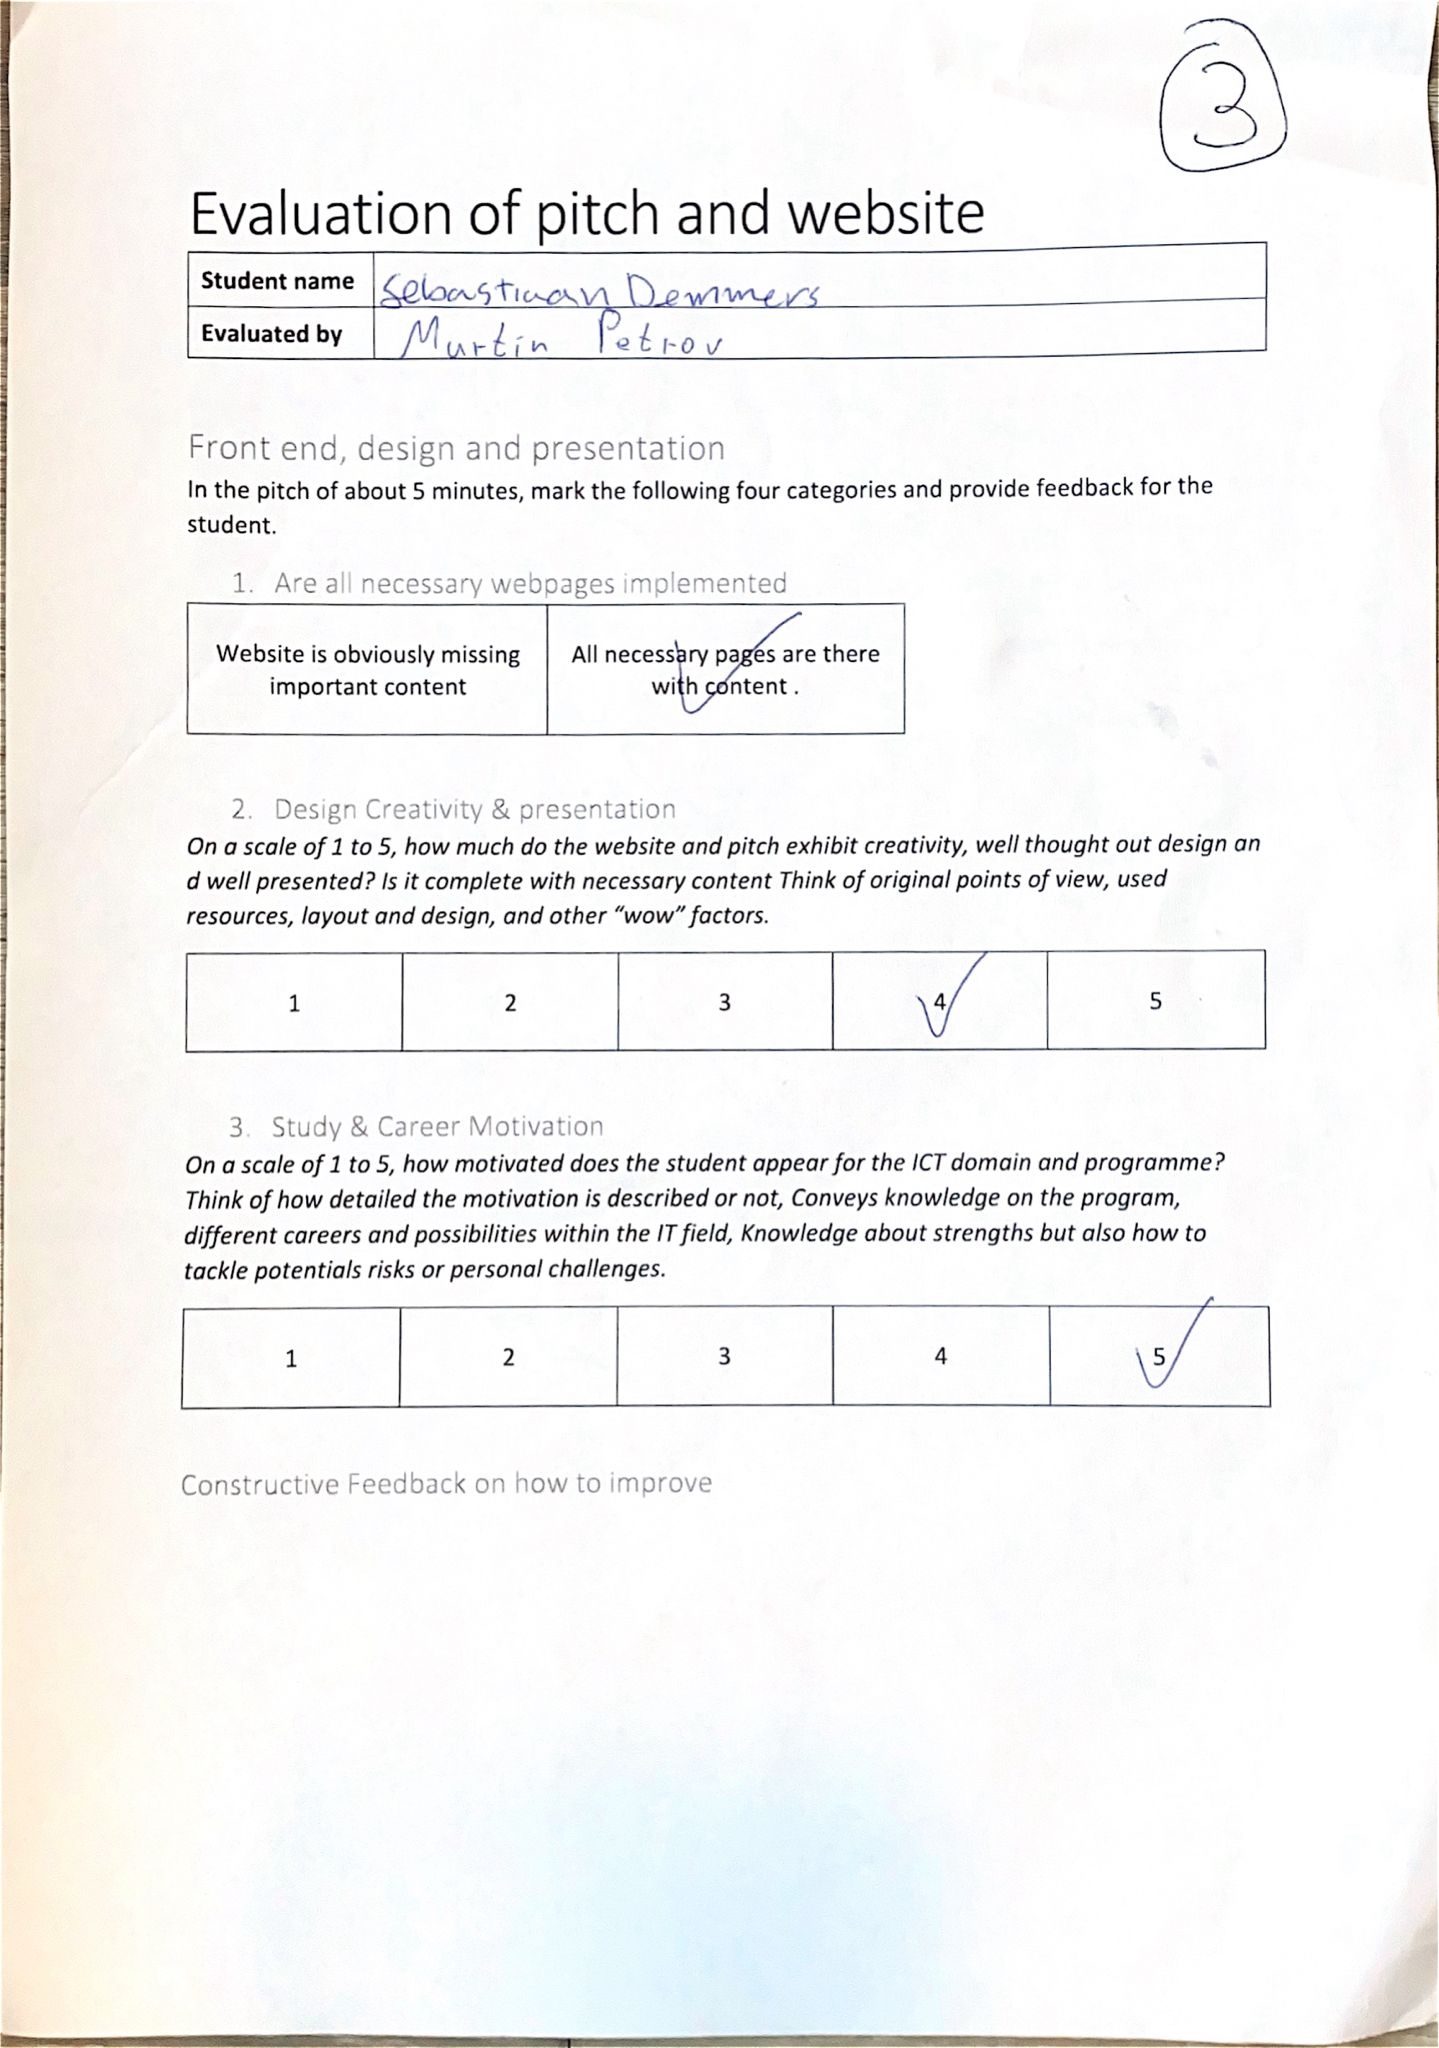 3
Evaluation of pitch and website
Student name Sebastiaan Demmers
Evaluated by Martin Petrov
Front end, design and presentation
In the pitch of about 5 minutes, mark the following four categories and provide feedback for the
student.
1. Are all necessary webpages implemented
Website is obviously missing All necessary pages are there
important content with content .
2. Design Creativity & presentation
On a scale of 1 to 5, how much do the website and pitch exhibit creativity, well thought out design an
d well presented? Is it complete with necessary content Think of original points of view, used
resources, layout and design, and other “wow” factors.
1 2 3 4 5
3. Study & Career Motivation
On a scale of 1 to 5, how motivated does the student appear for the ICT domain and programme?
Think of how detailed the motivation is described or not, Conveys knowledge on the program,
different careers and possibilities within the IT field, Knowledge about strengths but also how to
tackle potentials risks or personal challenges.
1 2 3 4 5
Constructive Feedback on how to improve